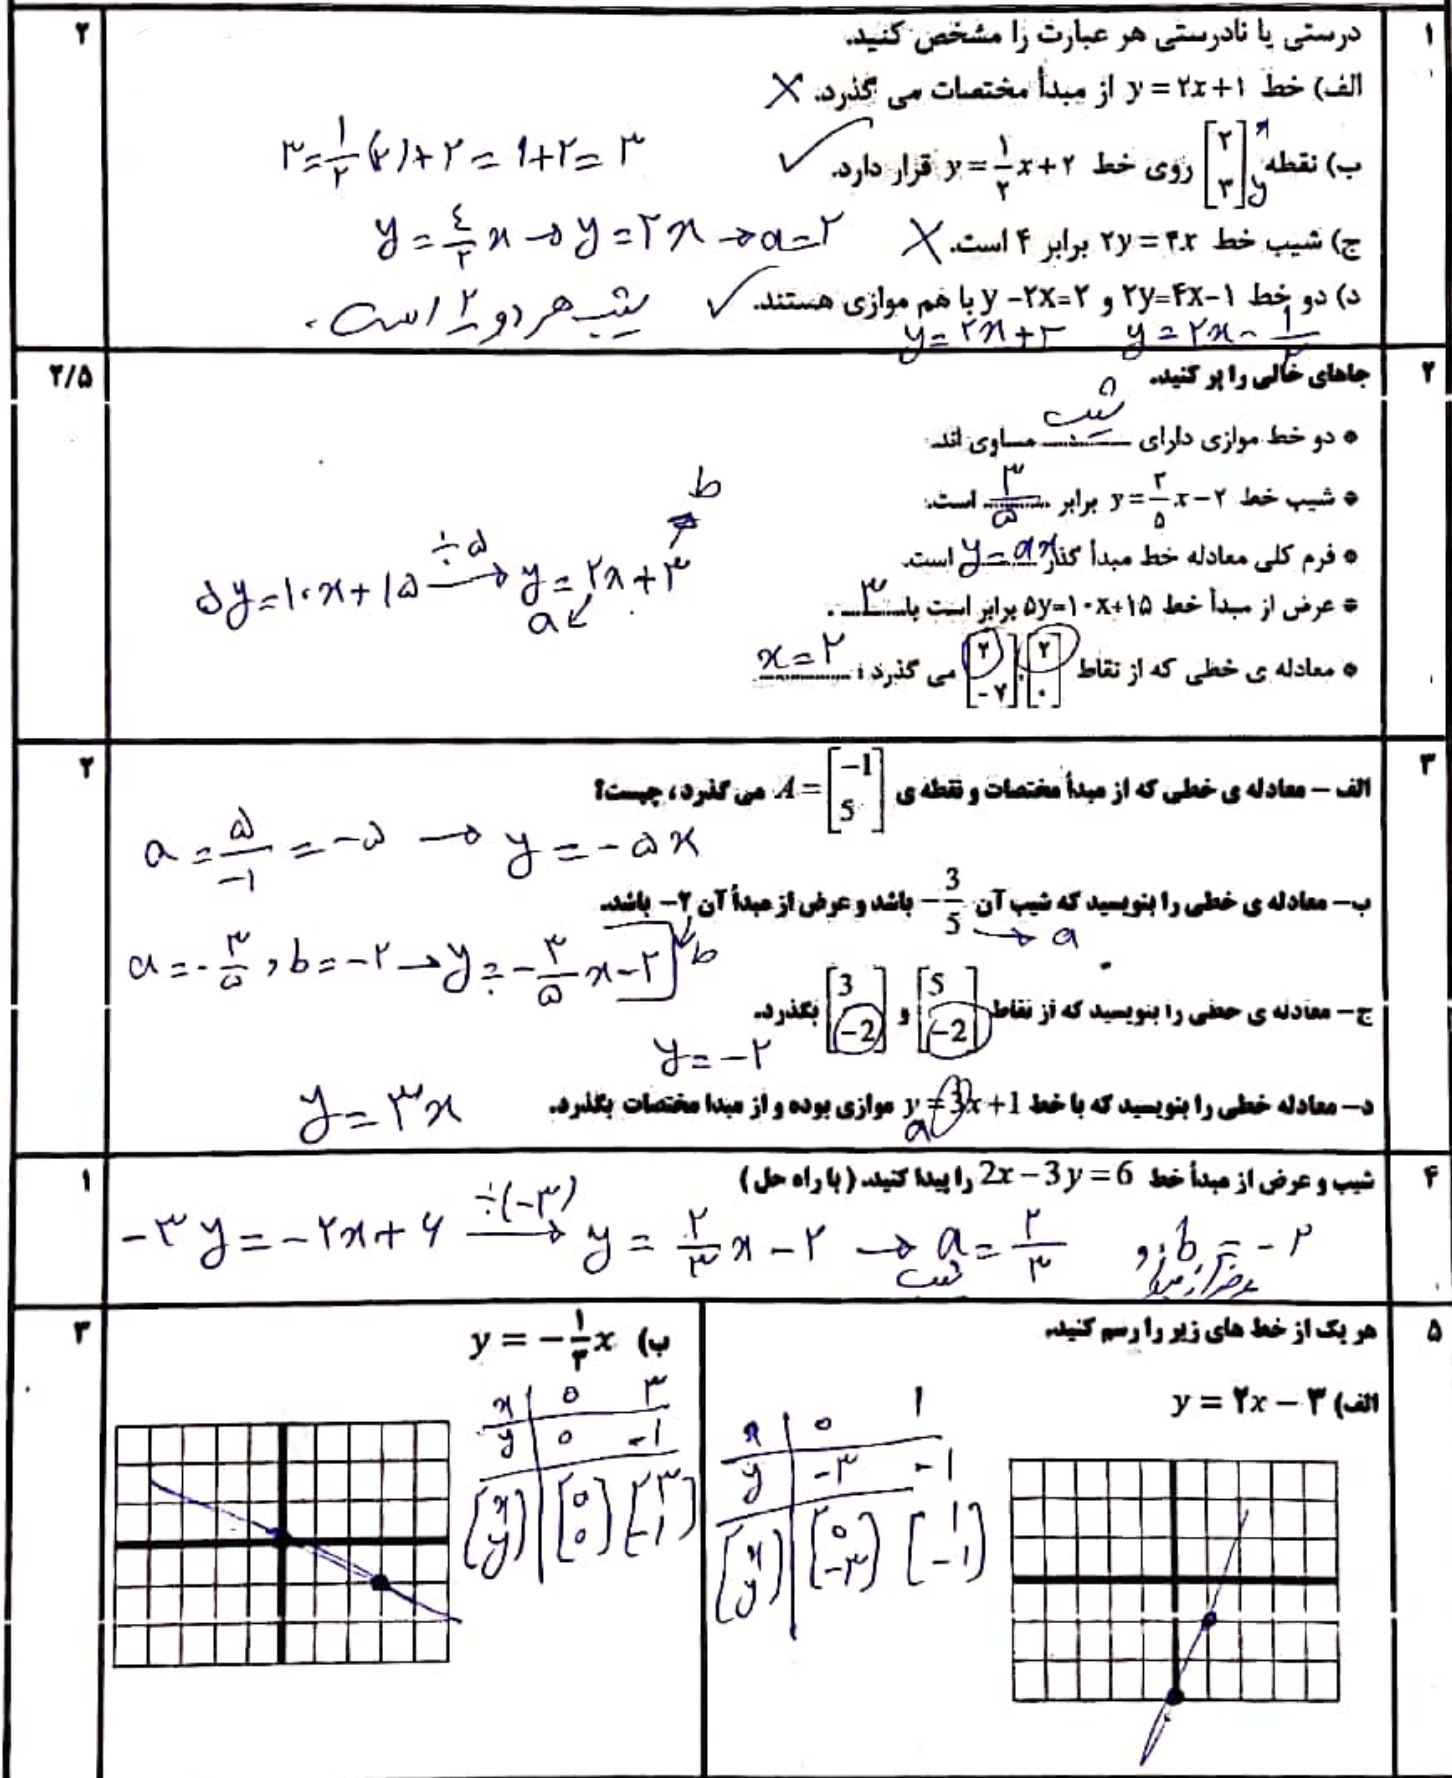 ۱ درستی یا نادرستی هر عبارت را مشخص کنید. ۲
الف) خط y = ۲x+۱ از مبدأ مختصات می گذرد. ✗
ب) نقطه [۲ ۳] x y روی خط y = ۱/۲ x+۲ قرار دارد. ✓ ۳ = ۱/۲ (۲)+۲ = ۱+۲ = ۳
ج) شیب خط ۲y = ۴x برابر ۴ است. ✗ y = ۴/۲ x → y = ۲x → a = ۲
د) دو خط ۲y=۴x-۱ و y -۲x=۳ با هم موازی هستند. ✓ شیب هر دو ۲ است.
y = ۲x - ۱/۲ y = ۲x+۳
۲ جاهای خالی را پر کنید. ۲/۵
* دو خط موازی دارای شیب مساوی اند.
* شیب خط y = ۳/۵ x - ۲ برابر ۳/۵ است.
* فرم کلی معادله خط مبدأ گذر y = ax است.
* عرض از مبدأ خط ۵y=۱۰x+۱۵ برابر است با ۳.
۵y = ۱۰x + ۱۵ ÷۵ → y = ۲x + ۳ a b
* معادله ی خطی که از نقاط [۲ ۰] , [۲ -۷] می گذرد : x = ۲
۳ الف – معادله ی خطی که از مبدأ مختصات و نقطه ی A = [-1 5] می گذرد، چیست؟ ۲
a = ۵/-۱ = -۵ → y = -۵x
ب– معادله ی خطی را بنویسید که شیب آن -3/5 باشد و عرض از مبدأ آن ۲– باشد.
→ a b
a = -۳/۵ , b = -۲ → y = -۳/۵ x - ۲
ج– معادله ی خطی را بنویسید که از نقاط [5 -2] و [3 -2] بگذرد.
y = -۲
د– معادله خطی را بنویسید که با خط y = 3x+1 موازی بوده و از مبدا مختصات بگذرد. y = ۳x
a
۴ شیب و عرض از مبدأ خط 2x - 3y = 6 را پیدا کنید. ( با راه حل ) ۱
-۳y = -۲x + ۶ ÷(-۳) → y = ۲/۳ x - ۲ → a = ۲/۳ , b = -۲
شیب عرض از مبدا
۵ هر یک از خط های زیر را رسم کنید. ۳
الف) y = ۲x - ۳
x | 0 ۱
y | -۳ -۱
[x y] | [0 -۳] [۱ -۱]
ب) y = -۱/۳ x
x | 0 ۳
y | 0 -۱
[x y] | [0 0] [۳ -۱]